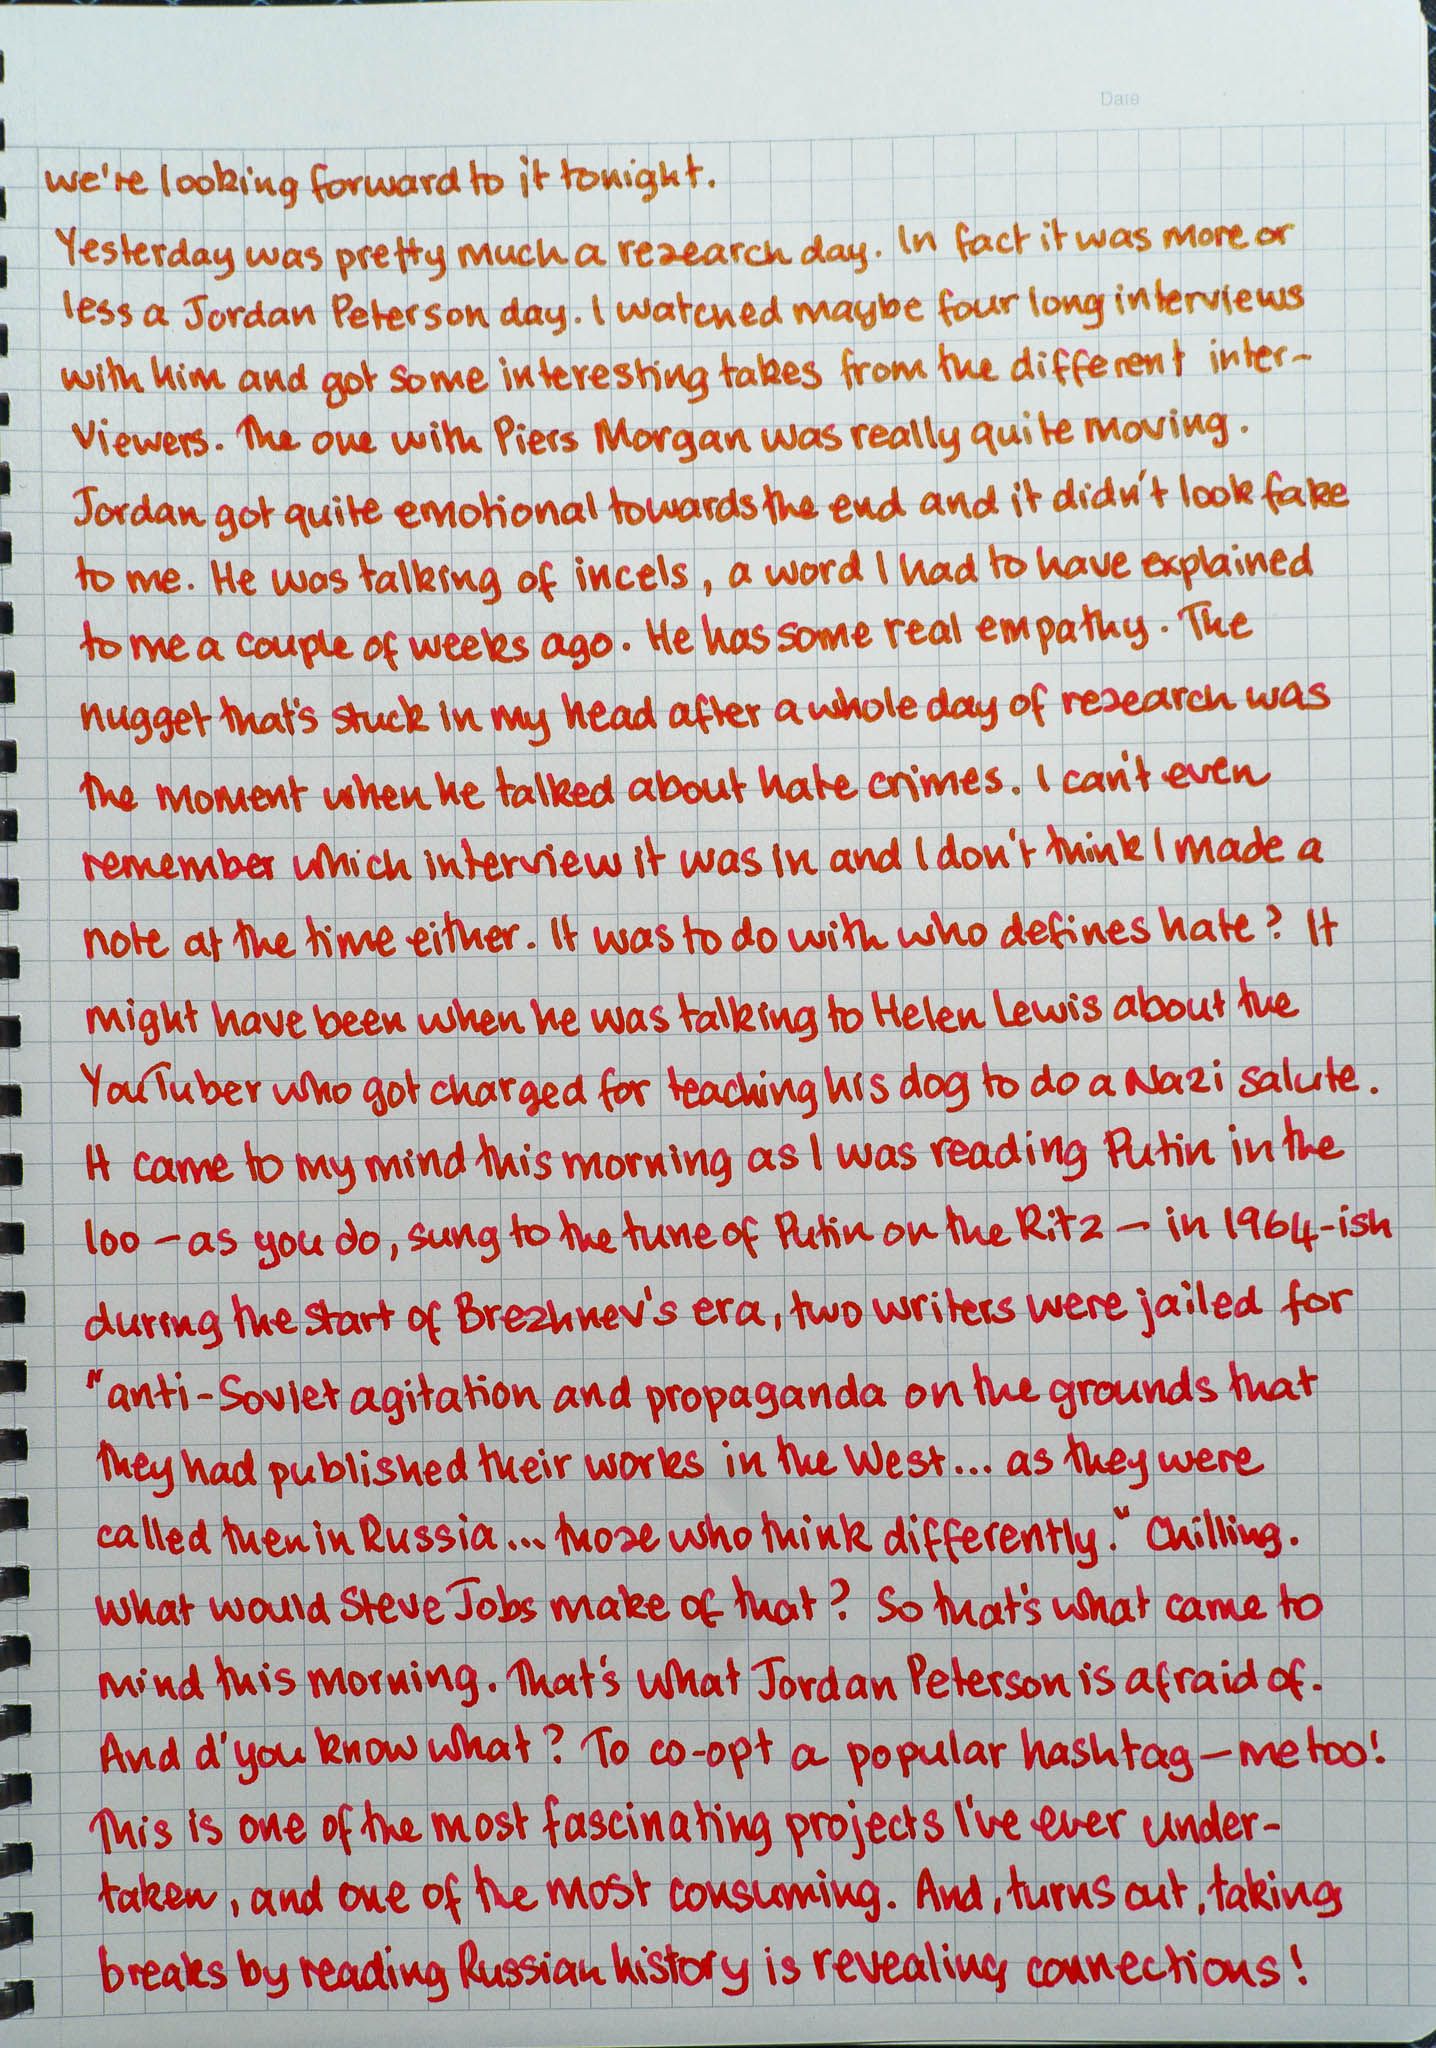 Date
we're looking forward to it tonight.
Yesterday was pretty much a research day. In fact it was more or
less a Jordan Peterson day. I watched maybe four long interviews
with him and got some interesting takes from the different inter-
viewers. The one with Piers Morgan was really quite moving.
Jordan got quite emotional towards the end and it didn't look fake
to me. He was talking of incels, a word I had to have explained
to me a couple of weeks ago. He has some real empathy. The
nugget that's stuck in my head after a whole day of research was
the moment when he talked about hate crimes. I can't even
remember which interview it was in and I don't think I made a
note at the time either. It was to do with who defines hate? It
might have been when he was talking to Helen Lewis about the
YouTuber who got charged for teaching his dog to do a Nazi salute.
It came to my mind this morning as I was reading Putin in the
loo – as you do, sung to the tune of Putin on the Ritz – in 1964-ish
during the start of Brezhnev's era, two writers were jailed for
"anti-Soviet agitation and propaganda on the grounds that
they had published their works in the West... as they were
called then in Russia... those who think differently." Chilling.
What would Steve Jobs make of that? So that's what came to
mind this morning. That's what Jordan Peterson is afraid of.
And d'you know what? To co-opt a popular hashtag – me too!
This is one of the most fascinating projects I've ever under-
taken, and one of the most consuming. And, turns out, taking
breaks by reading Russian history is revealing connections!